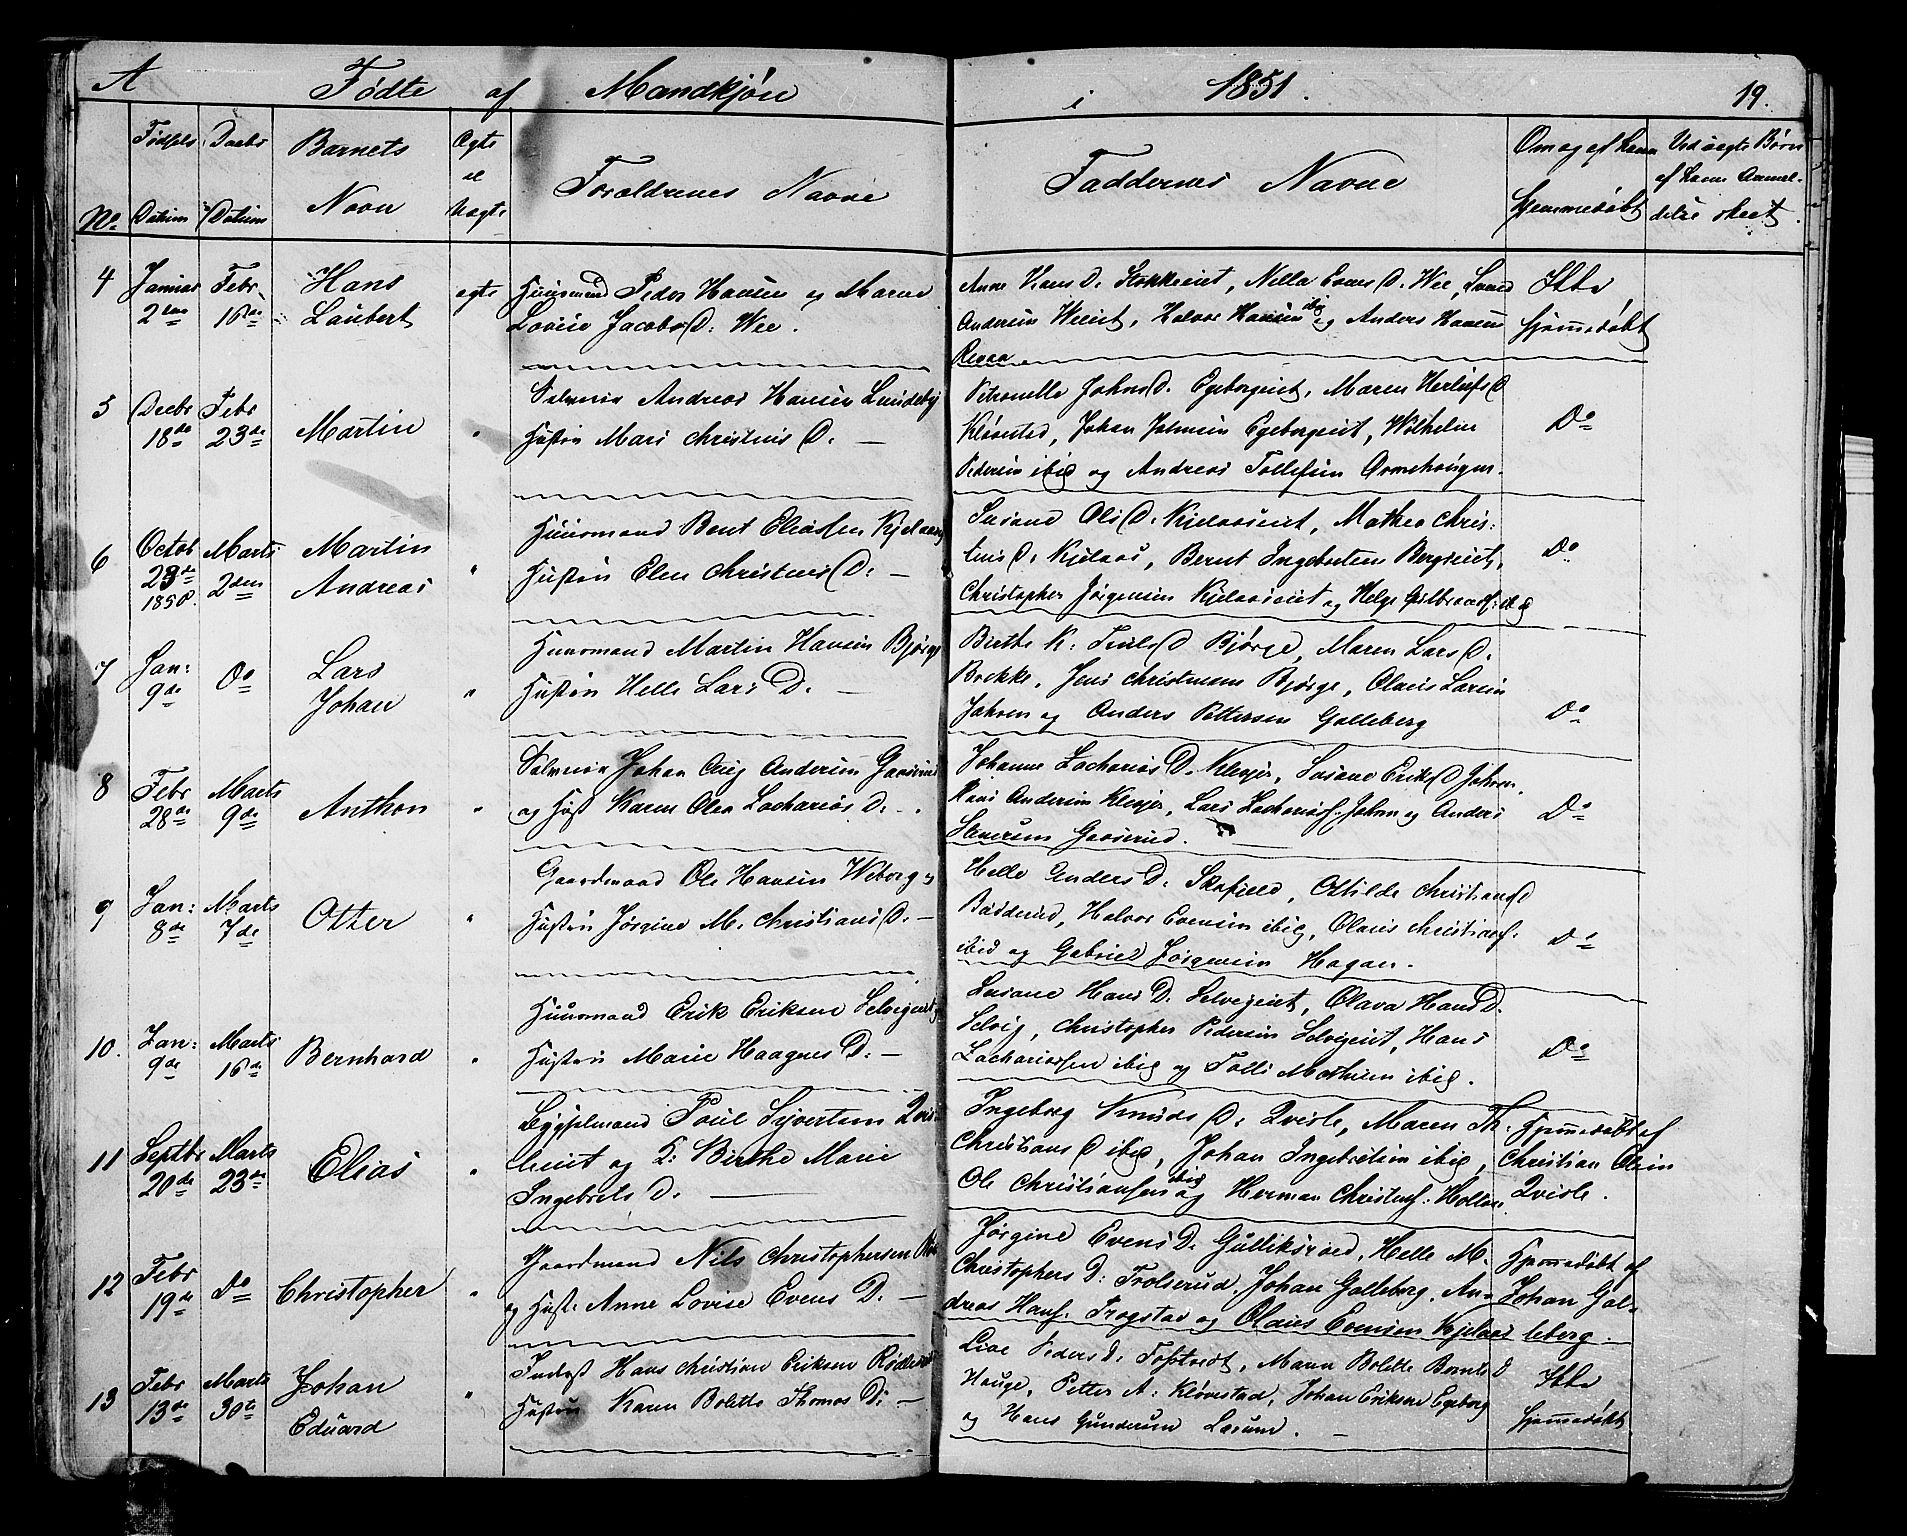 A Fødte af Mandkjøn i 1851. 19.
No. Fødsels Datum Daabs Datum Barnets Navn Ægte el Uægte Forældrenes Navne Faddernes Navne Om og af hvem Hjemmedøbt Ved uægte Børn af hvem Anmeldelse skeet.
4 Januar 2den Febr 16de Hans Laubert ægte
Huusmand Peder Hansen og Maren
Lovise Jacobs D: Wee.
Anne Hans D. Stokkeeiet, Nella Evens D. Wee,
Andersen Weeiet, Halvor Hansen ibid og Anders Hansen
Revaa.
Ikke
hjemmedøbt
5 Decbr 18de Febr 23de Martin "
Selveier Andreas Hansen Lundeby
Hustru Mari Christens D. —
Petronelle Johns D. Egebergeiet, Maren Herlufs D
Kløvstad, Johan Johnsen Egebergeiet, Wilhelm
Pedersen ibid og Andreas Tollefsen Ormehougen.
Do
6 Octob 23de 1850. Marts 2den Martin Andreas "
Huusmand Bent Eliassen Kjelaas
Hustru Elen Christens D: —
Susane Ols D. Kjelaaseiet, Mathea Chris-
tens D. Kjelaas, Bernt Ingebretsen Bergseiet,
Christopher Jørgensen Kjelaaseiet og Helge Gulbrands: ibid
Do
7 Jan: 9de Do Lars Johan "
Huusmand Martin Hansen Bjørge
Hustru Helle Lars D. —
Birthe K. Truls D Bjørge, Maren Lars D.
Brekke, Jens Christensen Bjørge, Olaus Larsen
Johren og Anders Pettersen Galleberg
Do
8 Febr 28de Marts 9de Anthon "
Selveier Johan Aug Andersen Gaaserud
og Hust Karen Olea Zacharias D: -.
Johanne Zacharias D. Klevjer, Susane Eriks D Johren,
Hans Andersen Klevjer, Lars Zachariass: Johren og Anders
Iversen Gaaserud.
Do
9 Jan: 8de Marts 7de Otter "
Gaardmand Ole Hansen Weberg og
Hustru Jørgine M. Christians D. —
Helle Anders D. Skafjeld, Otilde Christians D
Basserud, Halvor Evensen ibid, Olaus Christians:
ibid og Gabriel Jørgensen Hagan.
Do
10. Jan: 9de Marts 16de Bernhard "
Huusmand Erik Eriksen Selvigeiet
Hustru Marie Haagens D. —
Susane Hans D. Selvigeiet, Olava Hans D.
Selvig, Christopher Pedersen Selvigeiet, Hans
Zachariassen ibid og Tolle Mathisen ibid.
Do
11 Septbr 20de Marts 23de Elias "
Poul Syvertsen Qvis-
leeiet og H: Birthe Marie
Ingebrets D. —
Ingeborg Knuds D. Qvisle, Maren Th.
Christians D ibid, Johan Ingebretsen ibid,
Ole Christiansen ibid og Herman Christens: Holten.
Hjemmedøbt af
Christian Olsen
Qvisle.
12 Febr 19de Do Christopher "
Gaardmand Nils Christophersen
og Hust. Anne Lovise Evens D. —
Jørgine Evens D. Gulliksrød, Helle M.
Christophers D: Trolserud, Johan Galleberg, An-
dreas Hans: Frogstad og Olaus Evensen Kjelaas
Hjemmedøbt af
Johan Gal-
leberg.
13 Febr 13de Marts 30te Johan Eduard "
Inderst Hans Christian Eriksen
Hustru Karen Bolette Thomas D: —
Live Peders D. Toftvedt, Maren Bolette Bernts D
Hauge, Petter A: Kløvstad, Johan Eriksen Egeberg
og Hans Gundersen Lasum. —
Ikke
hjemmedøbt